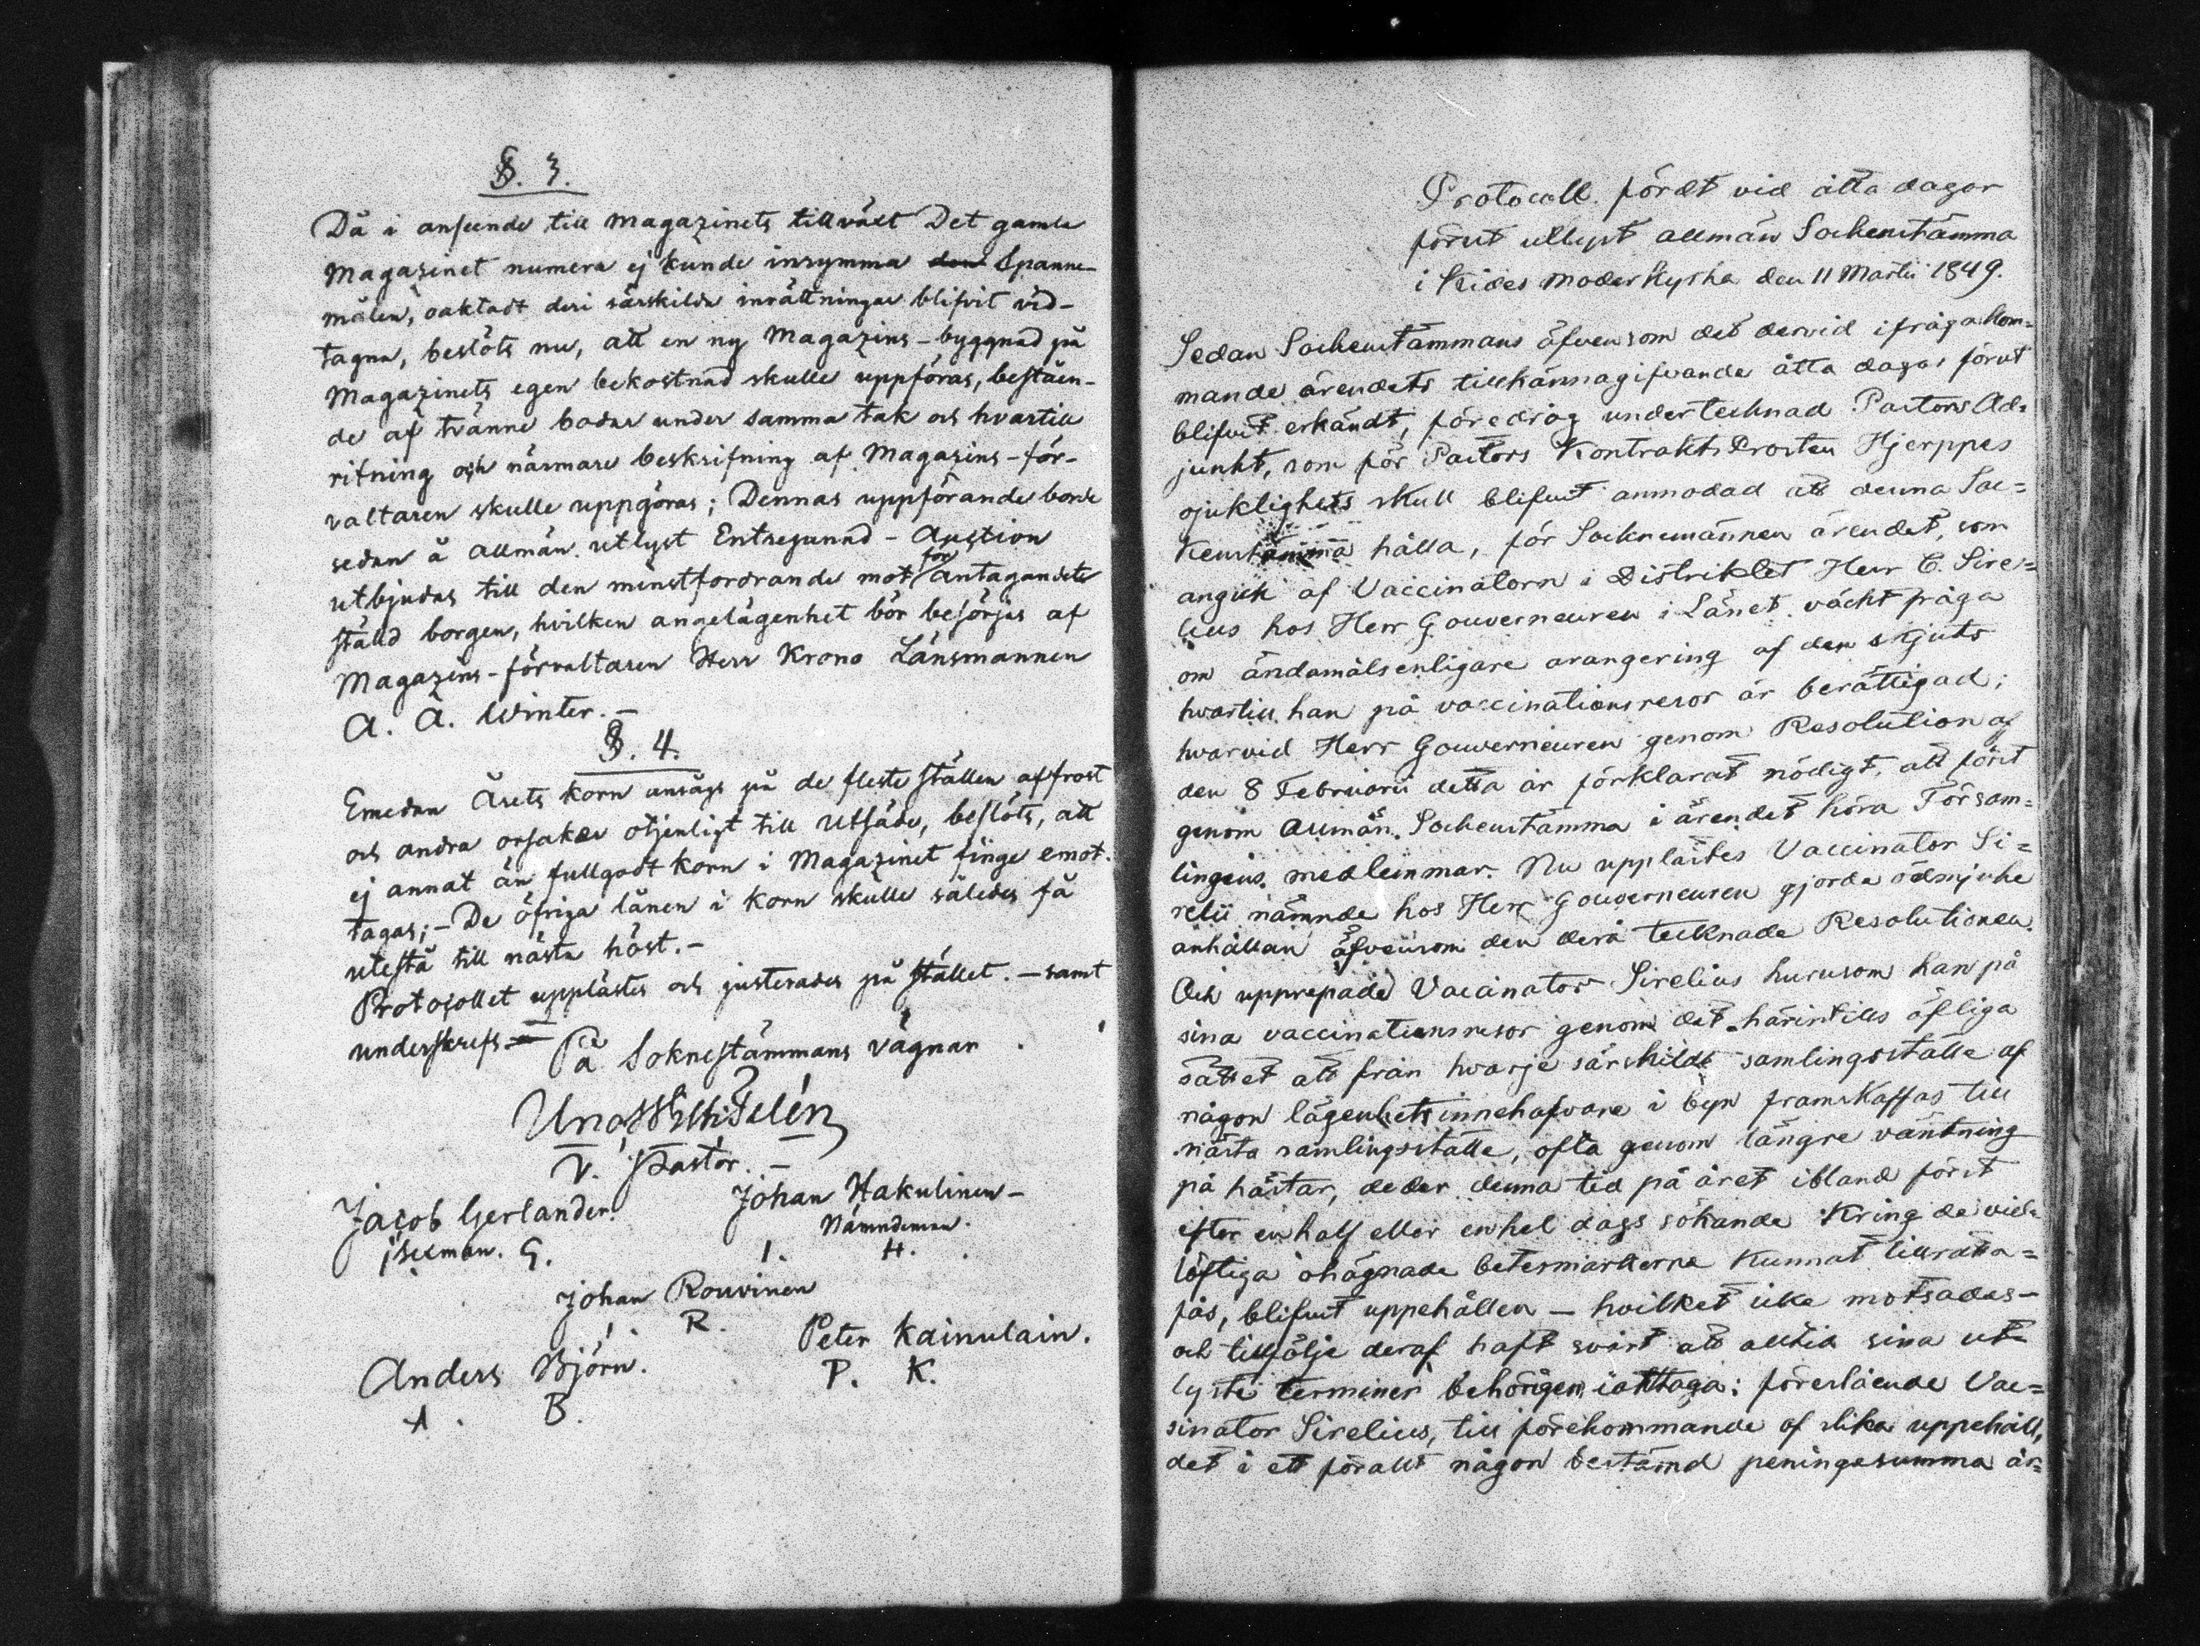 §. 3.
Då i anseende till Magazinets tillväxt Det gamla
Magazinet numera ej kunde inrymma den Spanne-
målen, oaktadt deri särskilda inrättningar blifvit vid-
tagna, beslöts nu, att en ny Magazins-byggnad på
Magazinets egen bekostnad skulle uppföras, beståen-
de af tvänne bodar under samma tak och hvartill
ritning och närmare beskrifning af Magazins-för-
valtaren skulle uppgöras; Dennas uppförande borde
sedan å allmän utlyst Entreprenad-Auction
utbjudas till den minstfordrande mot för antagandets
ställd borgen, hvilken angelägenhet bör besörjas af
Magazins-förvaltaren Herr Krono Länsmannen
A. A. Winter.-
§. 4.
Emedan Årets korn ansågs på de fleste ställen af frost
och andra orsaker otjenligt till Utsäde, beslöts, att
ej annat än fullgodt korn i Magazinet finge emot-
tagas;- De öfriga lånen i korn skulle således få
utestå till nästa höst.-
Protocollet upplästes och justerades på stället.- samt
underskrefs
På Soknestämmans vägnar
V. Pastor.-
Jacob Gerlander. Johan Hakulinen-
Nämndeman.
G. I. H.
Johan Rouvinen
I. R.
Anders Björn. Peter Kainulain.
A. B. P. K.
Protocoll fördt vid åtta dagar
förut utlyst allmän Sockenstämma
i Kides Moderkyrka den 11 Martii 1849.
Sedan Sockenstämmans äfvensom det dervid i fråga kom=
mande ärendets tillkännagifvande åtta dagar förut
blifvit erkändt, föredrog undertecknad Pastors Ad=
junkt, som för Pastors Kontrakts Prosten Hjerppes
sjuklighets skull blifvit anmodad att denna Soc=
kenstämma hålla, för Socknemännen ärendet, som
angick af Vaccinatorn i Distriktet Herr C. Sire=
lius hos Herr Gouverneuren i Länet väckt fråga
om ändamålsenligare arangering af den skjuts
hvartill han på vaccinationsresor är berättigad;
hvarvid Herr Gouverneuren genom Resolution af
den 8 Februarii detta år förklarat nödigt, att först
genom allmän Sockenstämma i ärendet höra Församm=
lingens medlemmar. Nu upplästes Vaccinator Si=
relii nämnde hos Herr Gouverneuren gjorda ödmjuke
anhållan äfvensom den derå tecknade Resolutionen.
Och upprepade Vaccinator Sirelius hurusom han på
sina vaccinationsresor genom det härintills öfliga
sättet att från hvarje särskildt samlingsställe af
någon lägenhetsinnehafvare i byn framskaffas till
nästa samlingsställe, ofta genom längre väntning
på hästar, de der denna tid på året ibland först
efter en half eller en hel dags sökande kring de vid=
löftiga ohägnade betesmarkerna kunnat tillrätta=
fås, blifvit uppehållen - hvilket icke motsades-
och tillfölje deraf haft svårt att alltid sina ut=
lyste terminer behörigen iakttaga; föreslående Vac=
sinator Sirelius, till förekommande af slika uppehåll,
det i ett för allt någon bestämd penningesumma år=